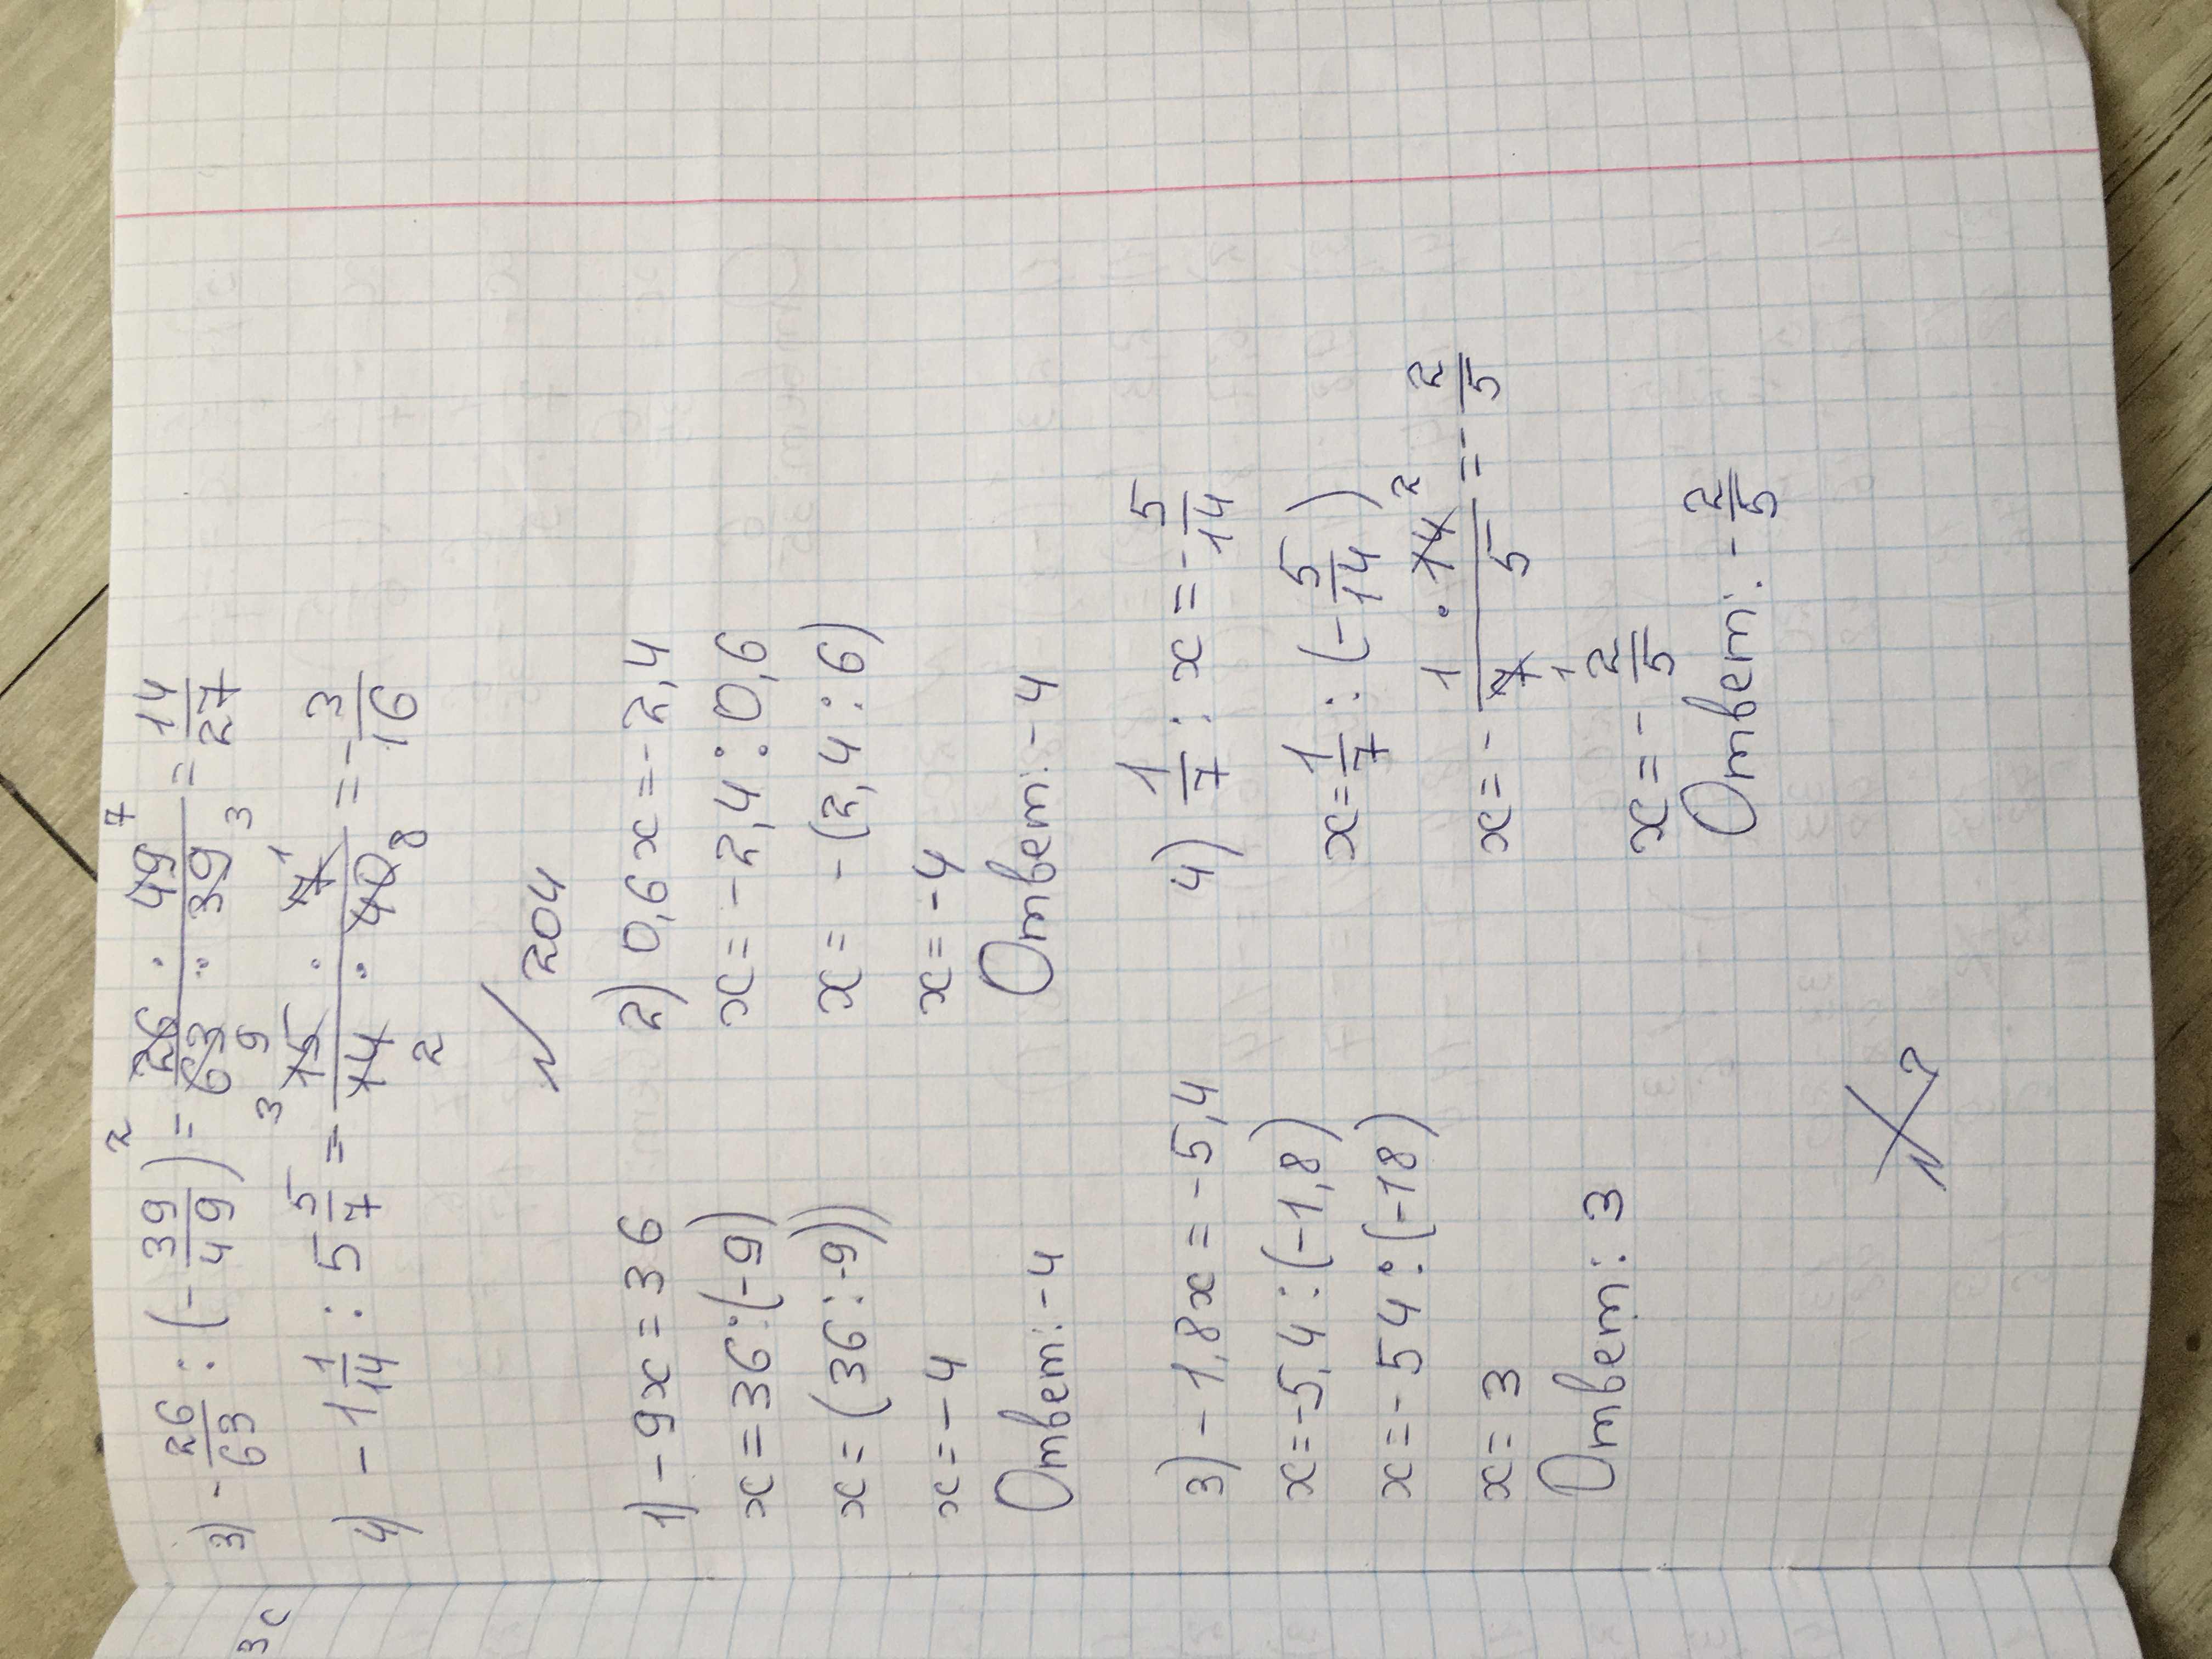 3) -26/63 : (-39/49) = 26 · 49 / 63 · 39 = 14/27
4) -1 1/14 : 5 5/7 = 15 · 7 / 14 · 40 = -3/16
N 204
1) -9x = 36
x = 36 : (-9)
x = (36 : -9))
x = -4
Ответ: -4
2) 0,6x = -2,4
x = -2,4 : 0,6
x = -(2,4 : 6)
x = -4
Ответ: -4
3) -1,8x = -5,4
x = -5,4 : (-1,8)
x = -54 : (-18)
x = 3
Ответ: 3
4) 1/7 : x = -5/14
x = 1/7 : (-5/14)
x = - 1 · 14 / 7 · 5 = -2/5
x = -2/5
Ответ: -2/5